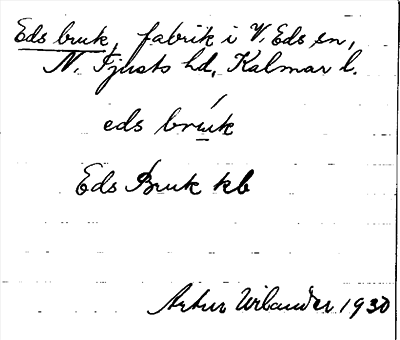 Eds bruk, fabrik i V. Eds sn,
N. Tjusts hd, Kalmar l.
eds bruk
Eds Bruk kb
Artur Wilander 1930